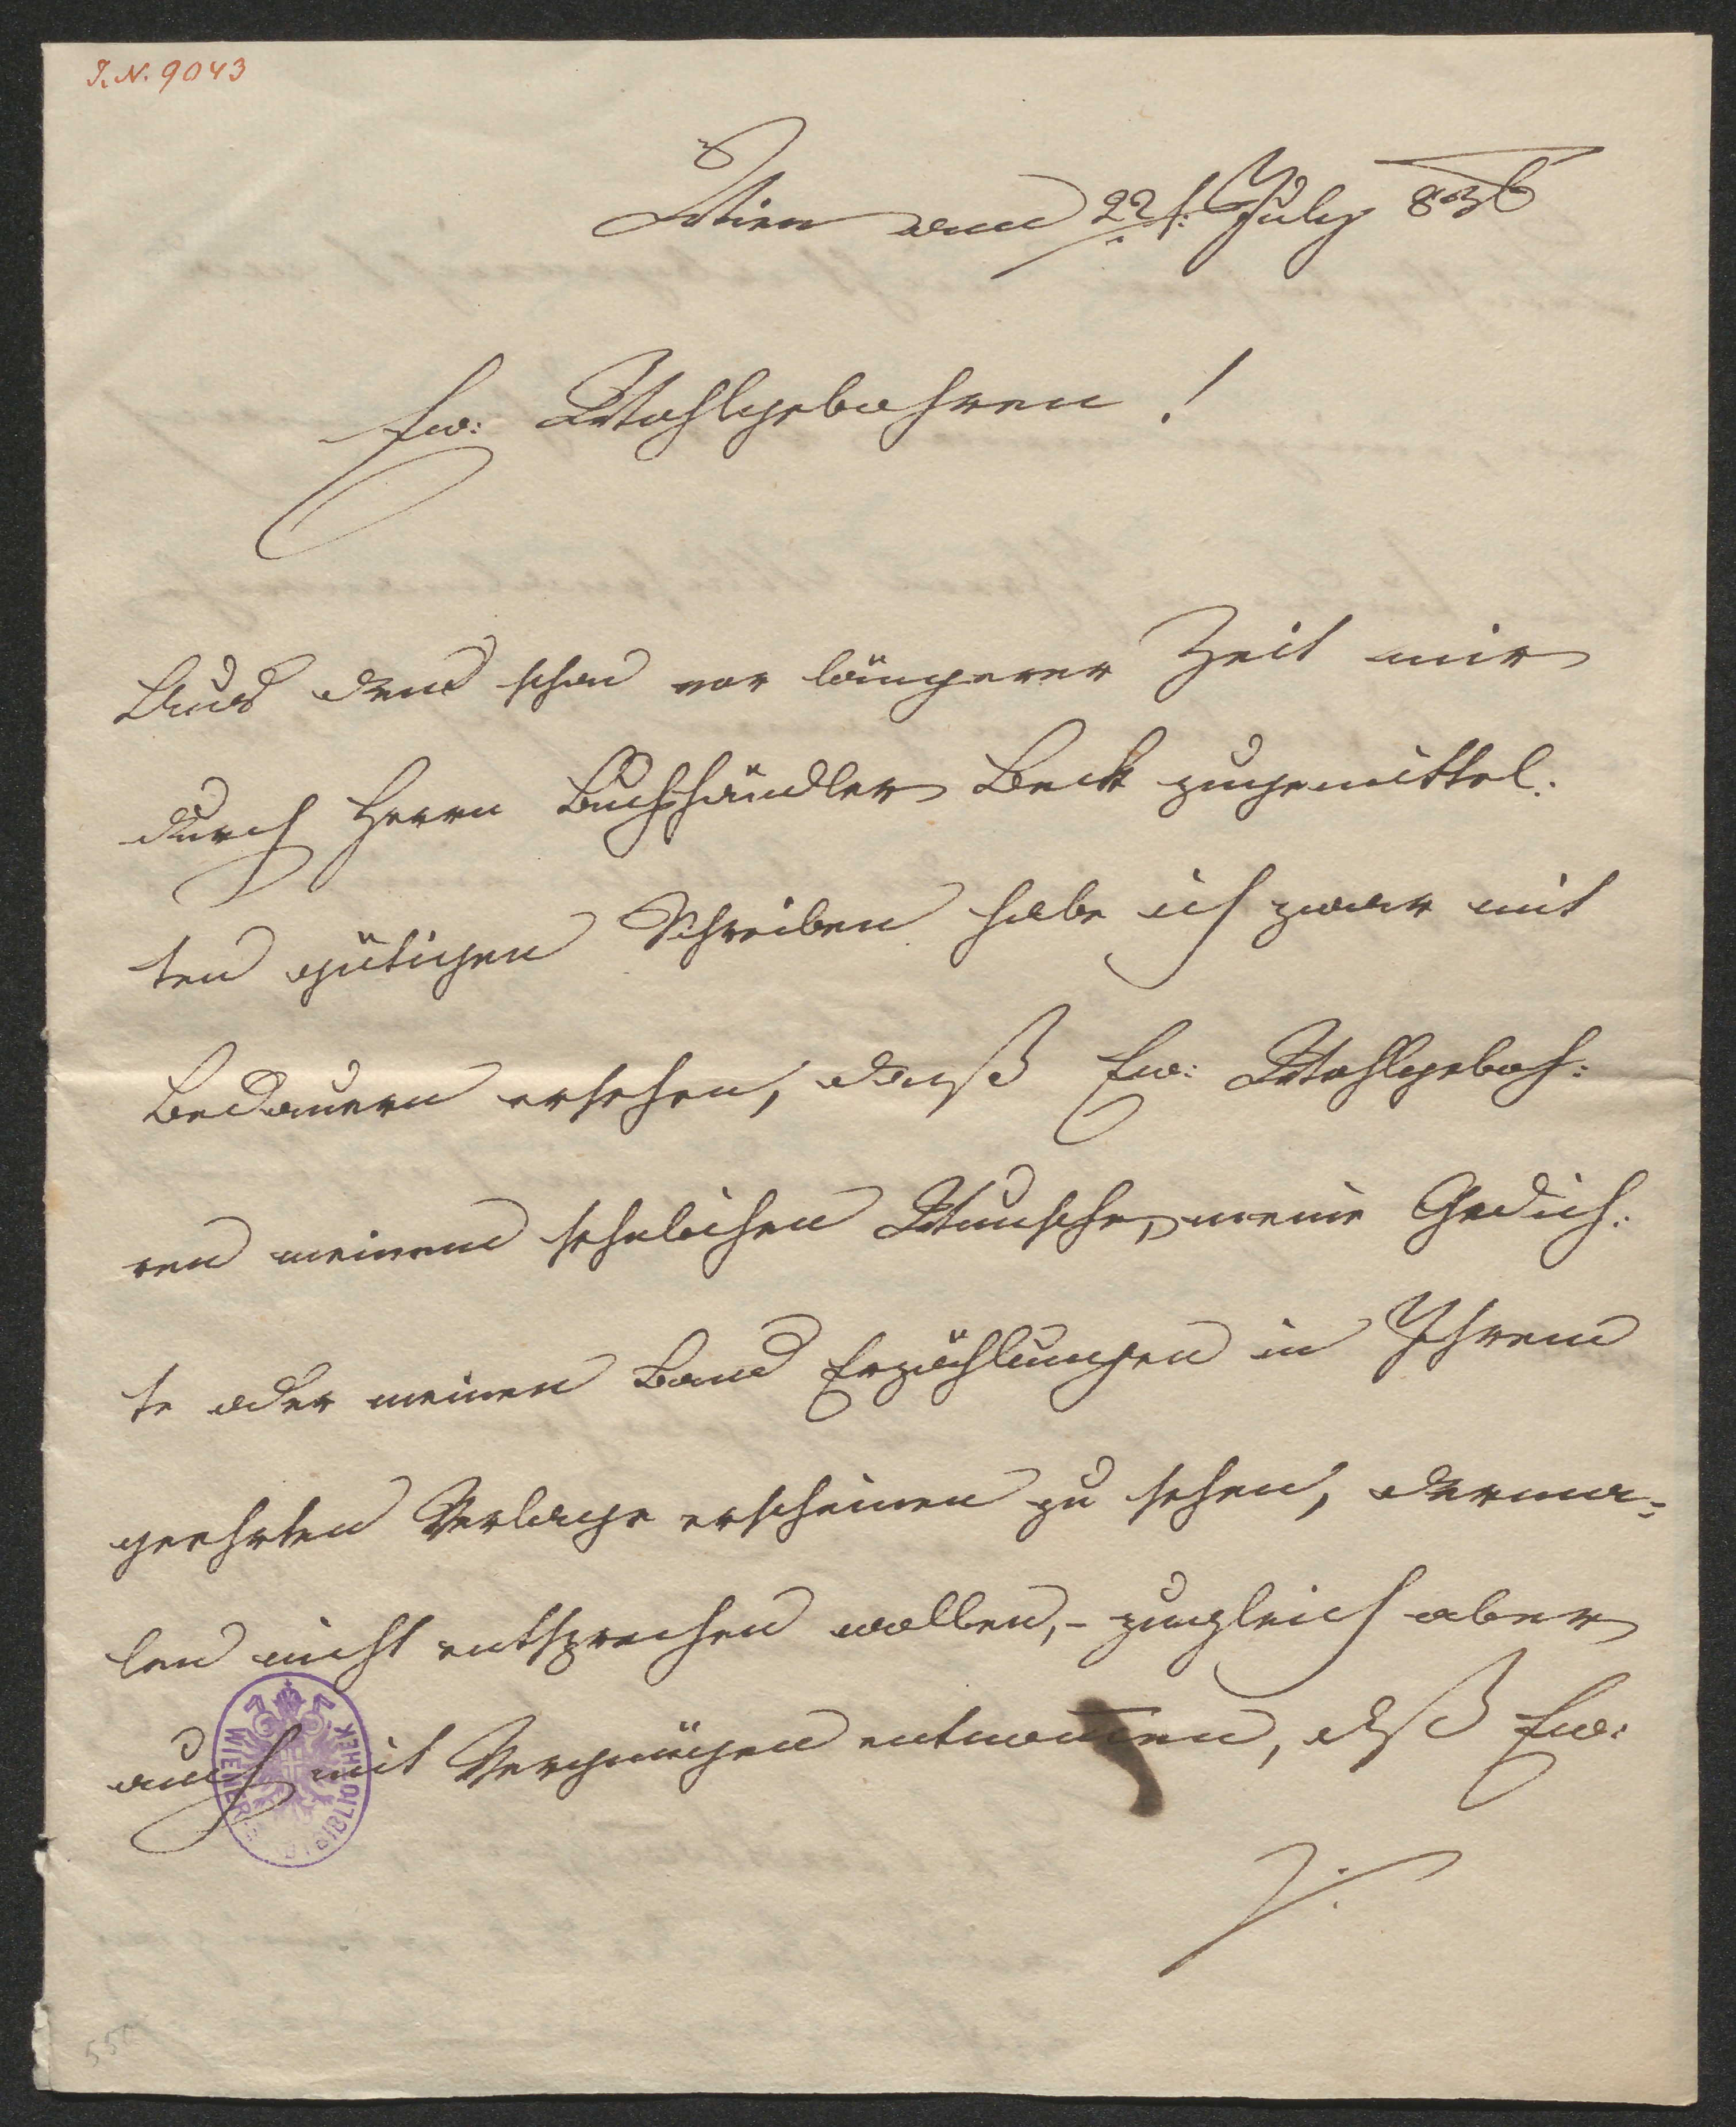 I. N. 9043
Wien am 22t: July 836
Ew: Wohlgebohren!
Aus dem schon vor längerer Zeit mir
durch Herrn Buchhändler Beck zugemittel:
ten gütigen Schreiben habe ich zwar mit
Bedauern ersehen, daß Ew: Wohlgeboh:
ren meinem sehnlichen Wunsche, meine Gedich:
te oder meinen Band Erzählungen in Ihrem
geehrten Verlage erscheinen zu sehen, derma:
len nicht entsprechen wollen, - zugleich aber
auch mit Vergnügen entnommen, daß Ew:
WIENER STADTBIBLIOTHEK
550